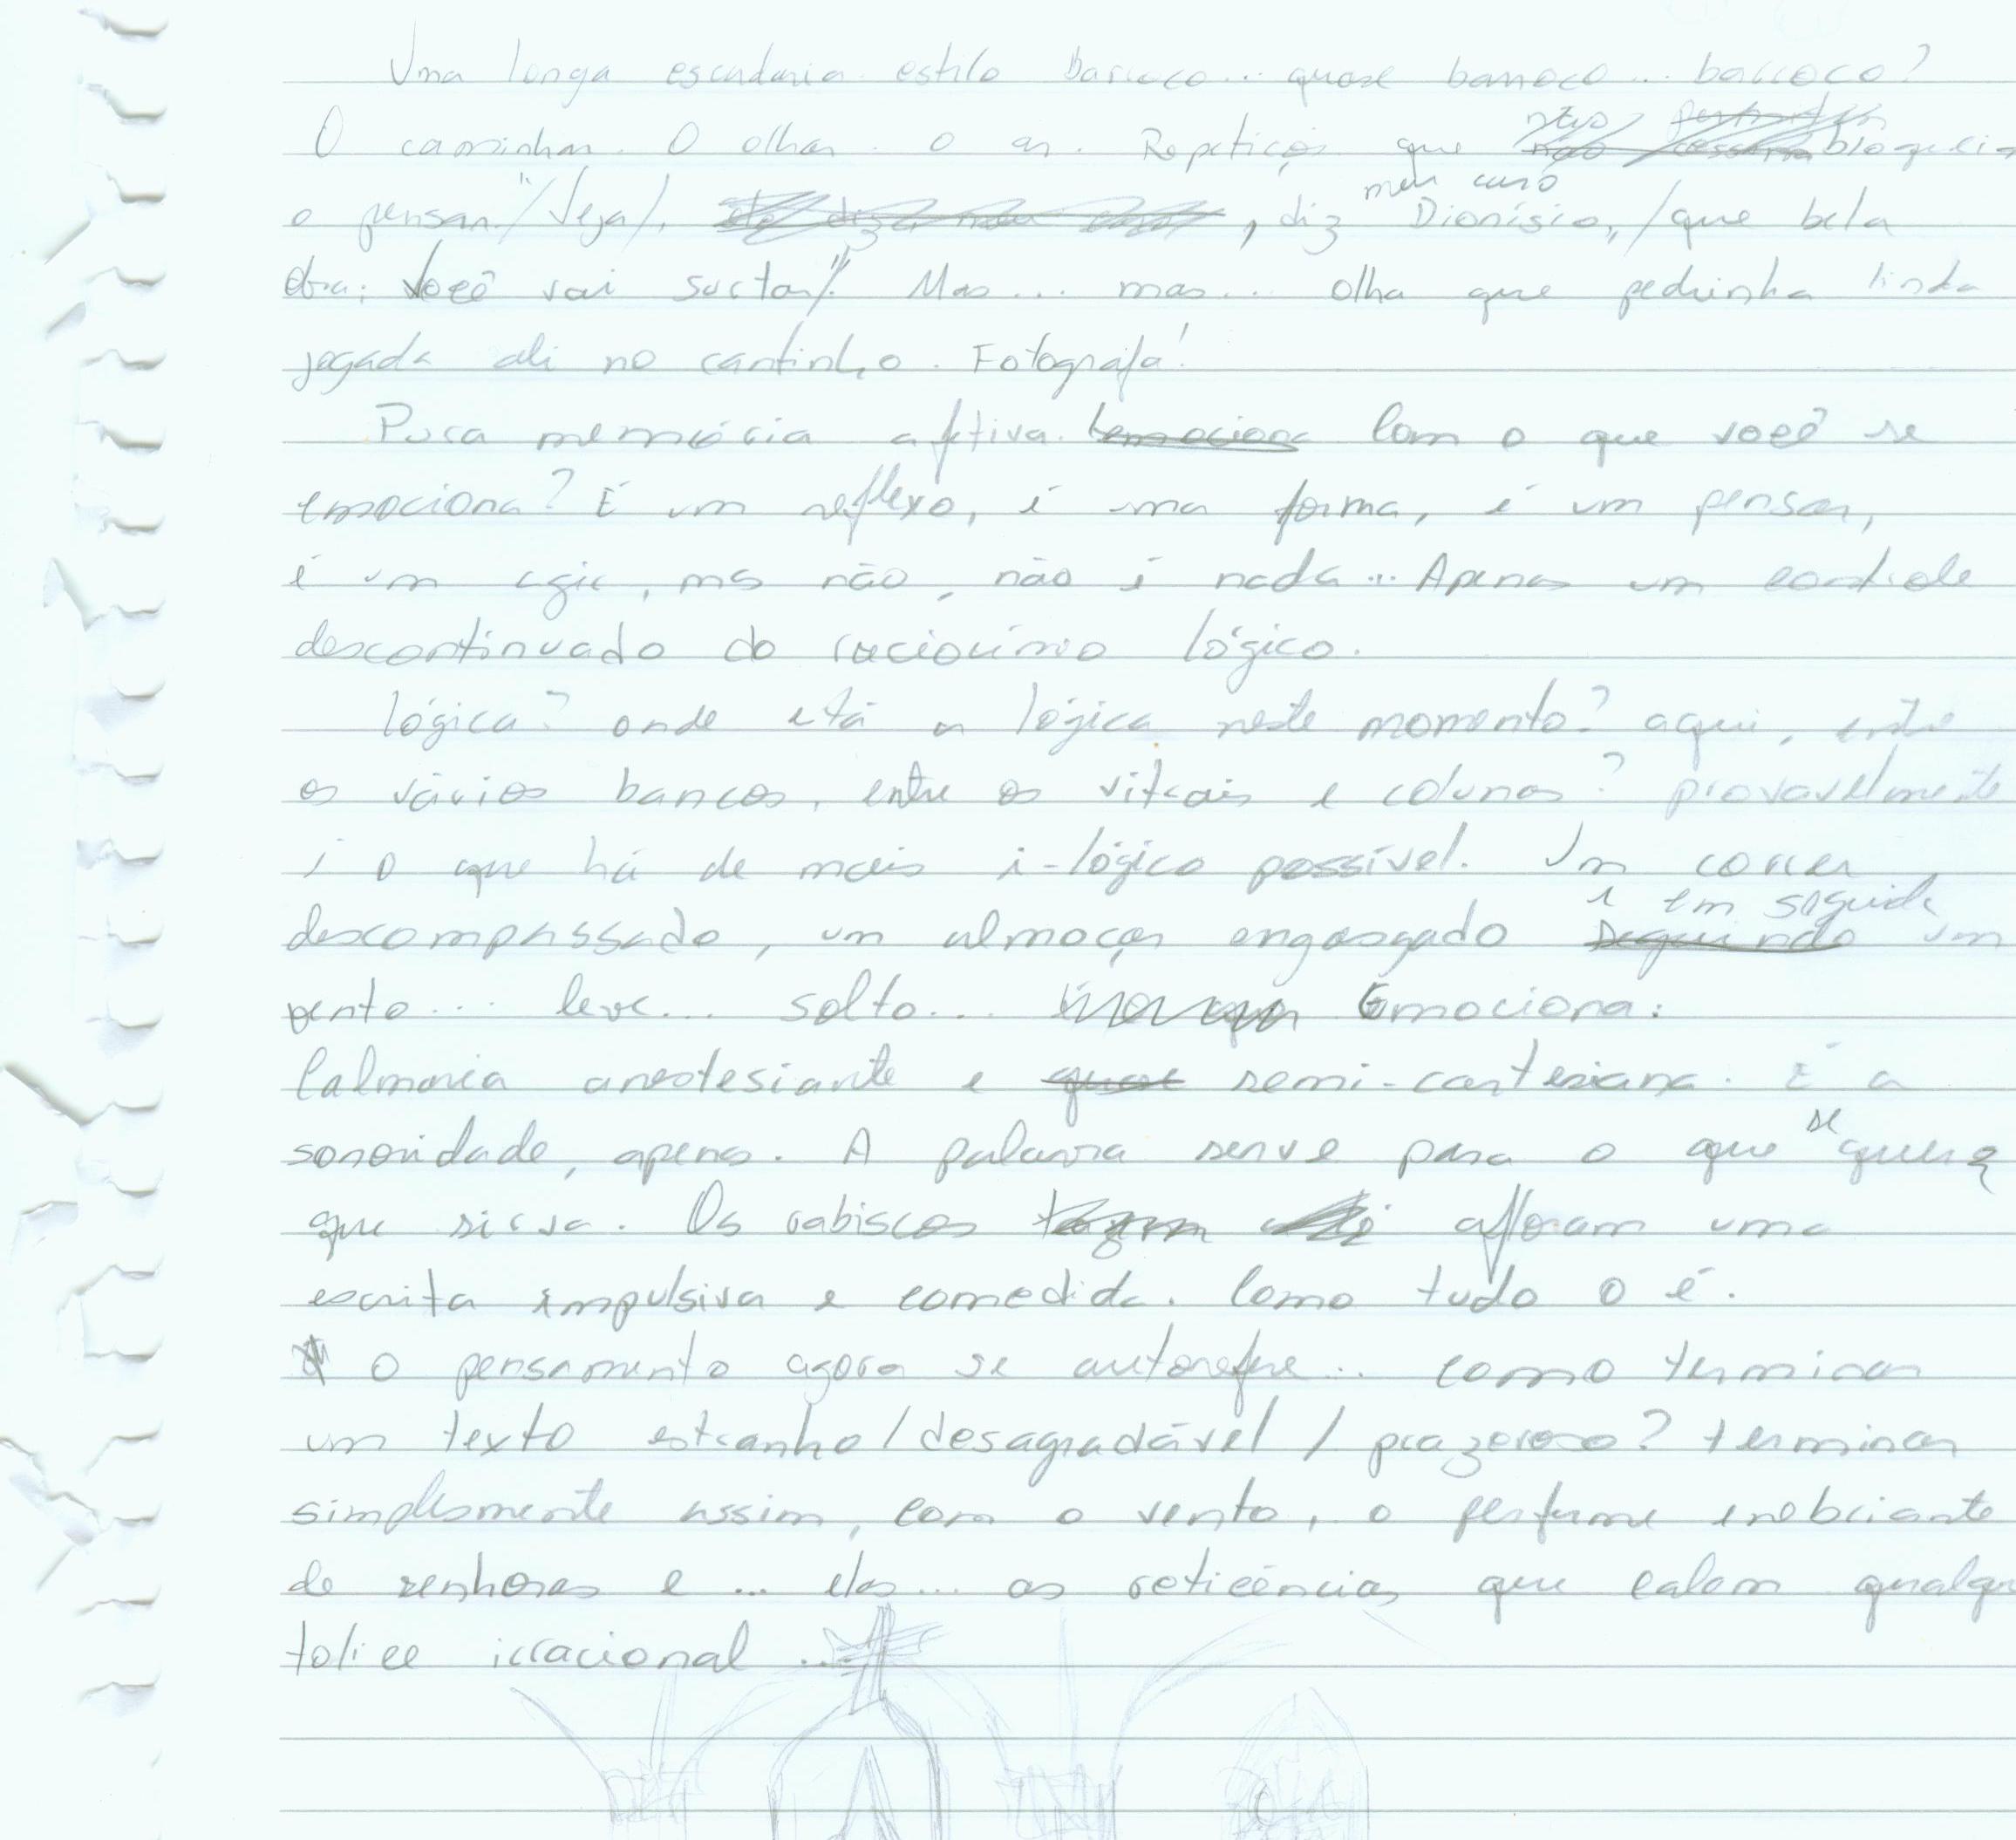 Uma longa escadaria estilo barroco... quase barroco... barroco?
O caminhar. O olhar. o ar. Repetições que bloqueia
o pensar. "Veja, diz meu caro Dionísio, que bela
obra: você vai surtar". Mas... mas... olha que pedrinha linda
jogada ali no cantinho. Fotografa!
Pura memória afetiva. Com o que você se
emociona? É um reflexo, é uma forma, é um pensar,
é um agir, ms não, não é nada... Apenas um controle
descontinuado do raciocínio lógico.
lógica? onde está a lógica neste momento? aqui, entre
os vários bancos, entre os vitrais e colunas? provavelmente
é o que há de mais i-lógico possível. Um correr
descompassado, um almoçar engasgado e em seguida um
vento... leve... solto... Emociona:
Calmaria anestesiante e semi-cartesiana. É a
sonoridade, apenas. A palavra serve para o que se queira
que sirva. Os rabiscos afloram uma
escrita impulsiva e comedida. Como tudo o é.
o pensamento agora se autorefere... como terminar
um texto estranho/desagradável/prazeroso? terminar
simplesmente assim, com o vento, o perfume inebriante
de senhoras e... elas... as reticências que calam qualqu
tolice irracional...